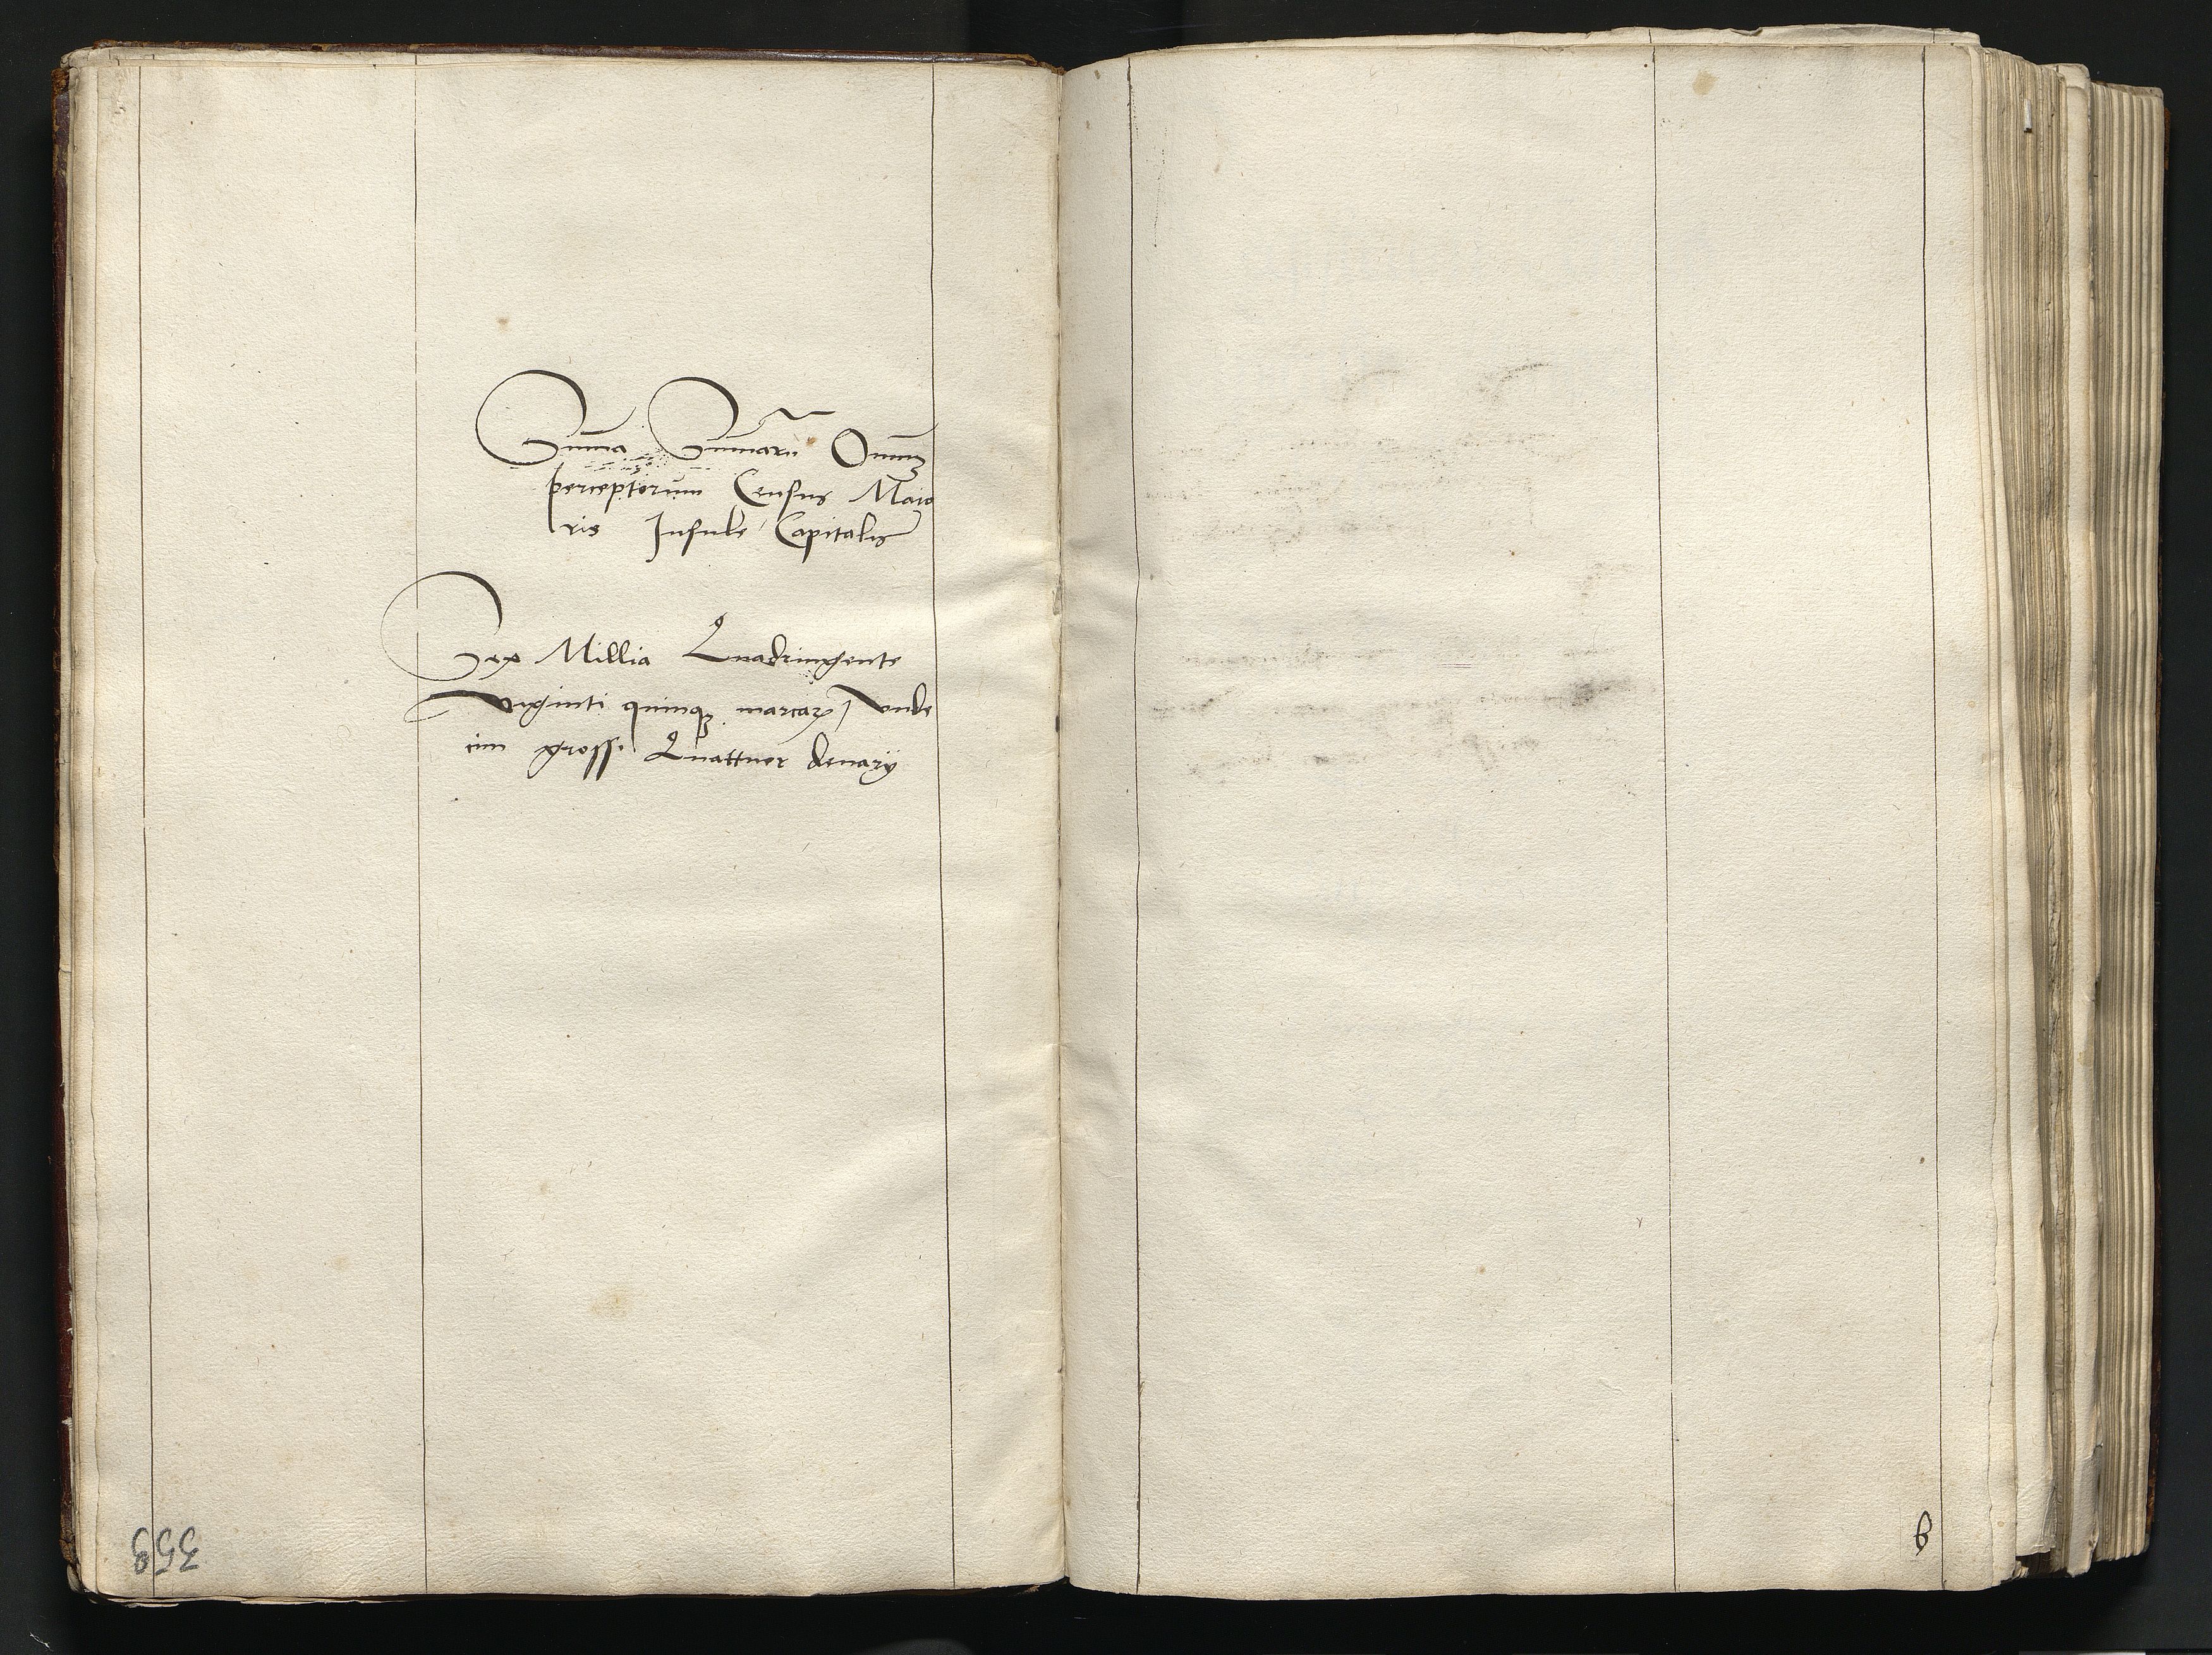 Sum̄a Sum̄arū Omniū
perceptorum Census Maio
ris Insule Capitalis
Sex Millia Quadringente
viginti quinqꝫ marcaꝝ / vnde
cim grossi Quattuor denarÿ
353